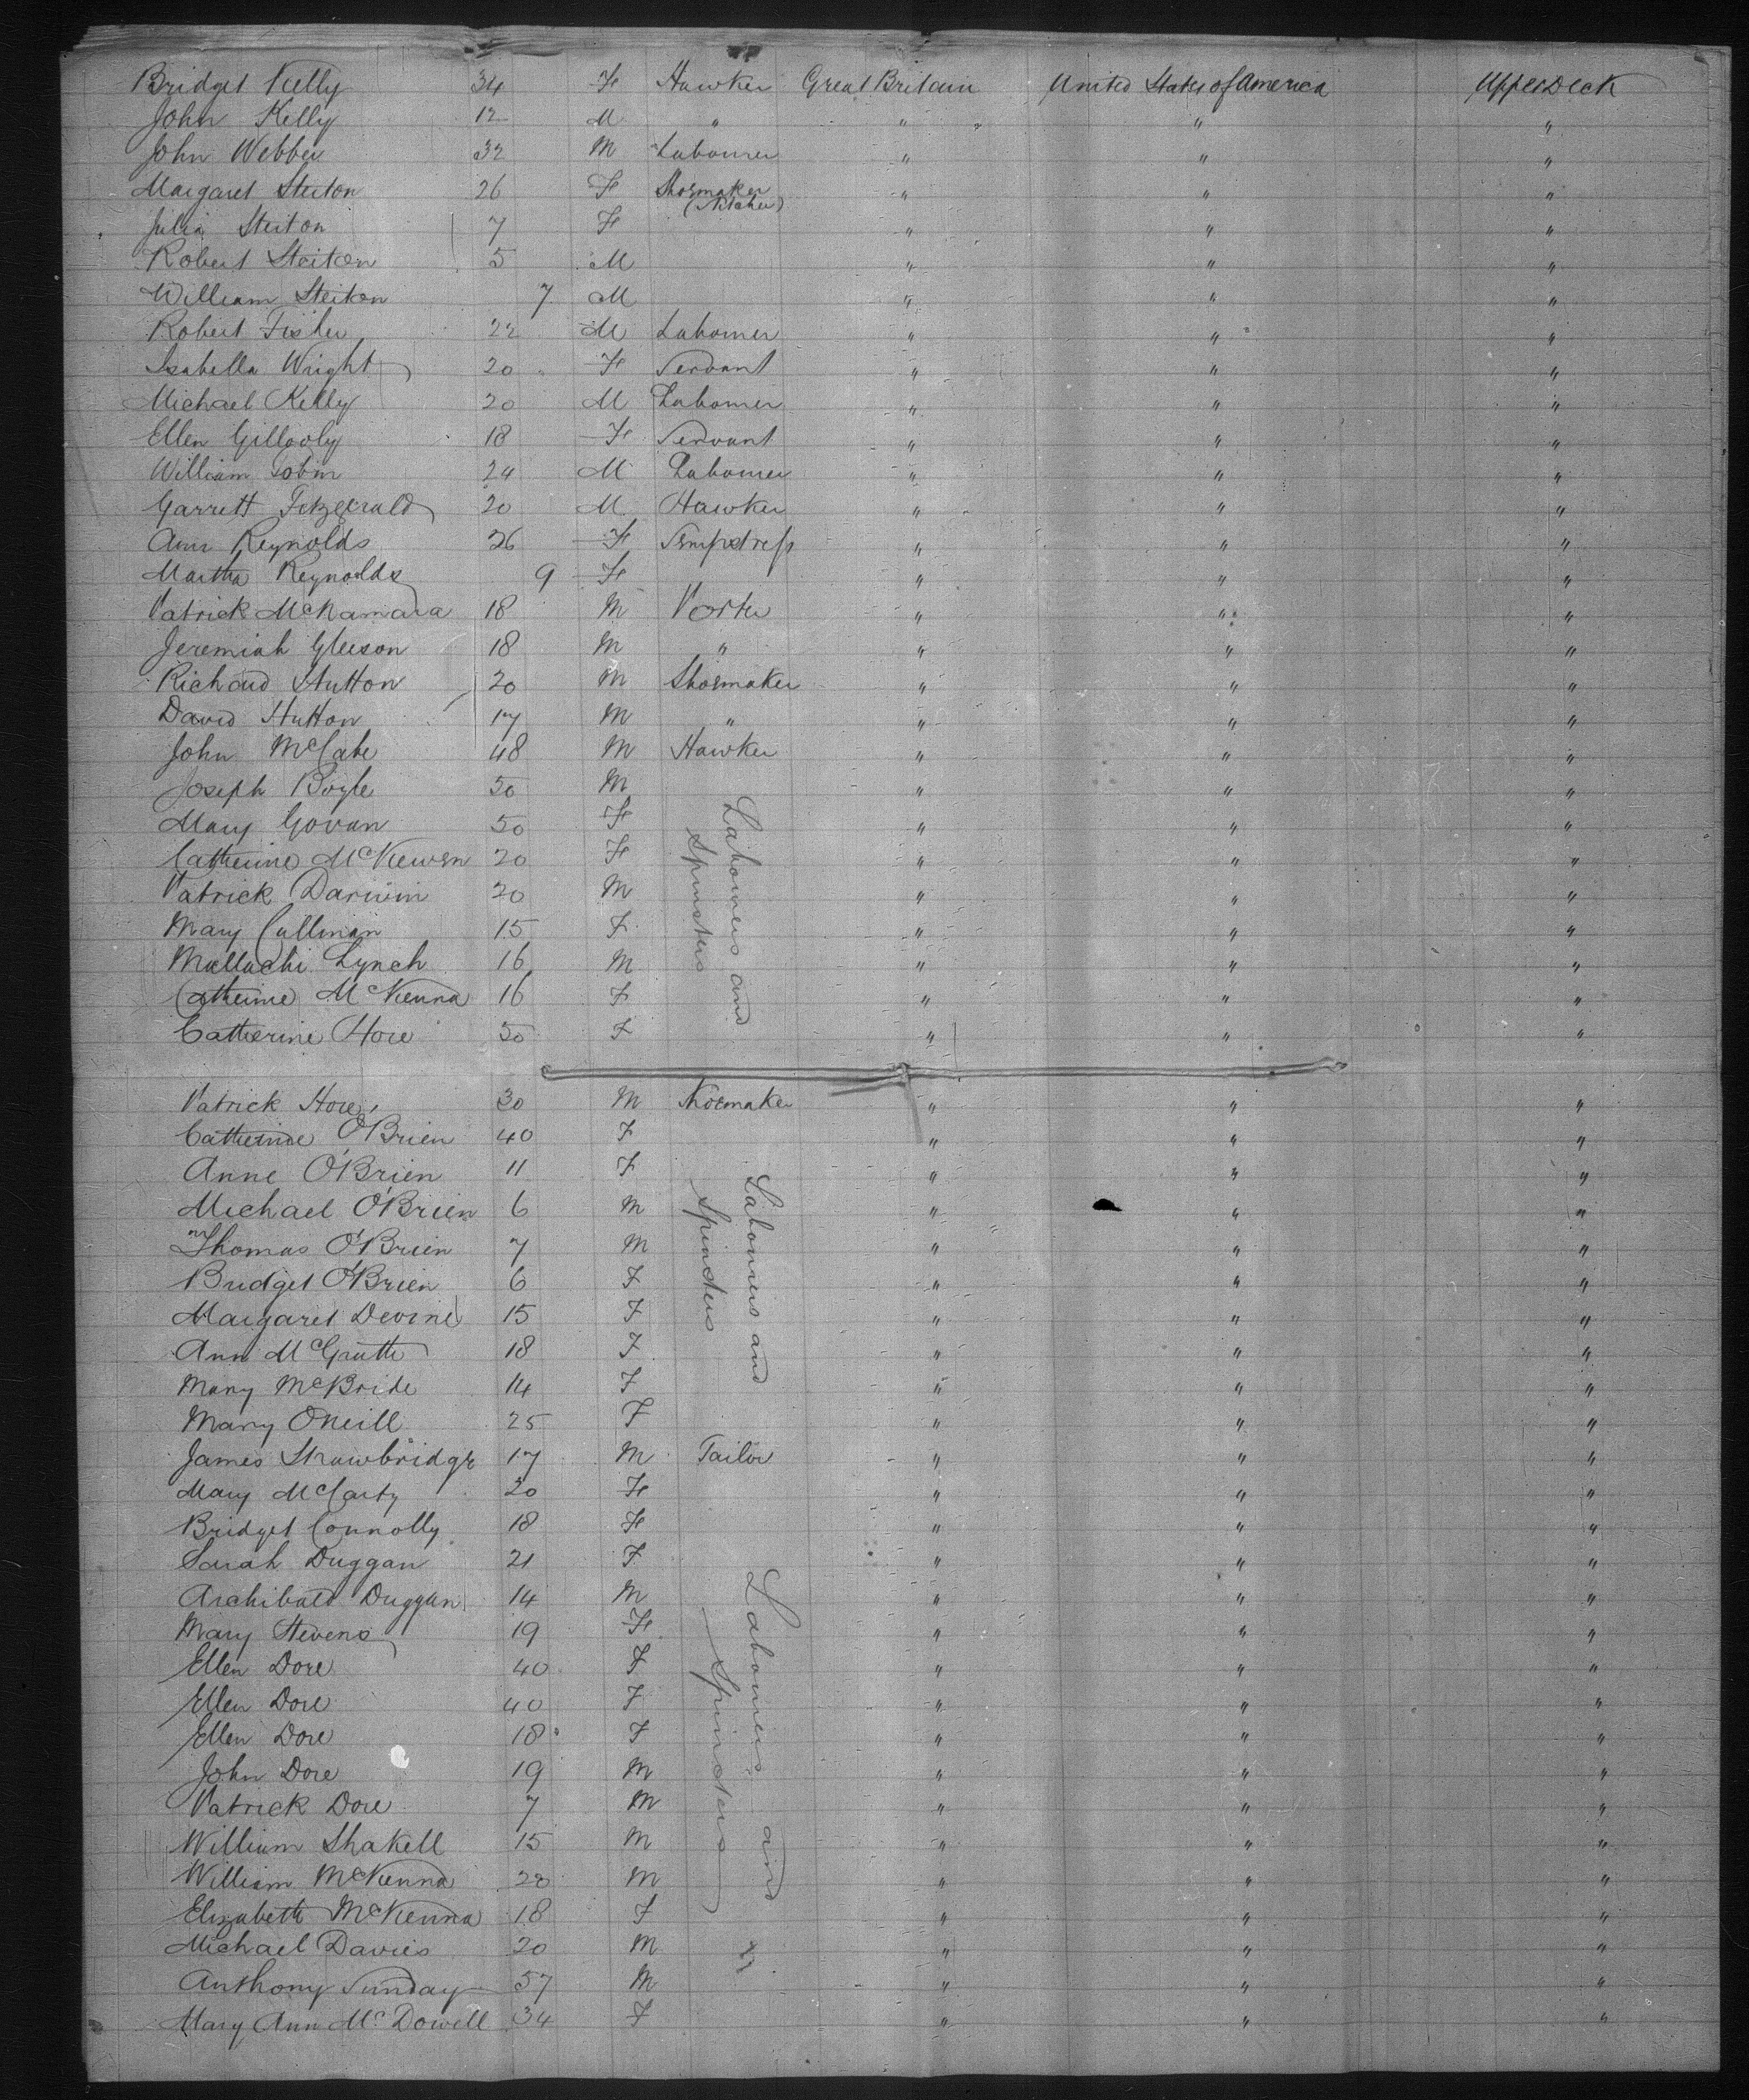 Bridget Kelly 34 F Hawker Great Britain United States of America Upper Deck
John Kelly 12 M " " " "
John Webber 32 M Labourer " " "
Margaret Steiton 26 F Shoemaker " " "
(Stitcher)
Julia Steiton 7 F " " "
Robert Steiton 5 M " " "
William Steiton 7 M " " "
Robert Fisher 22 M Labourer " " "
Isabella Wright 20 F Servant " " "
Michael Kelly 20 M Labourer " " "
Ellen Gillooly 18 F Servant " " "
William Tobin 24 M Labourer " " "
Garrett Fitzgerald 20 M Hawker " " "
Ann Reynolds 26 F Sempstress " " "
Martha Reynolds 9 F " " "
Patrick McNamara 18 M Porter " " "
Jeremiah Gleeson 18 M " " " "
Richard Hutton 20 M Shoemaker " " "
David Hutton 17 M " " " "
John McCabe 48 M Hawker " " "
Joseph Boyle 50 M " " "
Mary Govan 50 F " " "
Catherine McKewen 20 F " " "
Patrick Darwin 20 M " " "
Mary Cullinan 15 F " " "
Mallachi Lynch 16 M " " "
Catherine McKenna 16 F " " "
Catherine Hore 50 F " " "
Labourers and
Spinsters
Patrick Hore 30 M Shoemaker " " "
Catherine O'Brien 40 F " " "
Anne O'Brien 11 F " " "
Michael O'Brien 6 M " " "
Thomas O'Brien 7 M " " "
Bridget O'Brien 6 F " " "
Margaret Devine 15 F " " "
Ann McGrath 18 F " " "
Mary McBride 14 F " " "
Mary ONeill 25 F " " "
Labourers and
Spinsters
James Strawbridge 17 M Tailor " " "
Mary McCarty 20 F " " "
Bridget Connolly 18 F " " "
Sarah Duggan 21 F " " "
Archibald Duggan 14 M " " "
Mary Stevens 19 F " " "
Ellen Dore 40 F " " "
Ellen Dore 40 F " " "
Ellen Dore 18 F " " "
John Dore 19 M " " "
Patrick Dore 7 M " " "
William Shakell 15 M " " "
William McKenna 28 M " " "
Elizabeth McKenna 18 F " " "
Michael Davies 20 M " " "
Anthony Sunday 57 M " " "
Mary Ann McDowell 34 F " " "
Labourers and
Spinsters